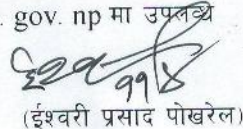 . gov. np मा उपलब्ध
(ईश्वरी प्रसाद पोखरेल)